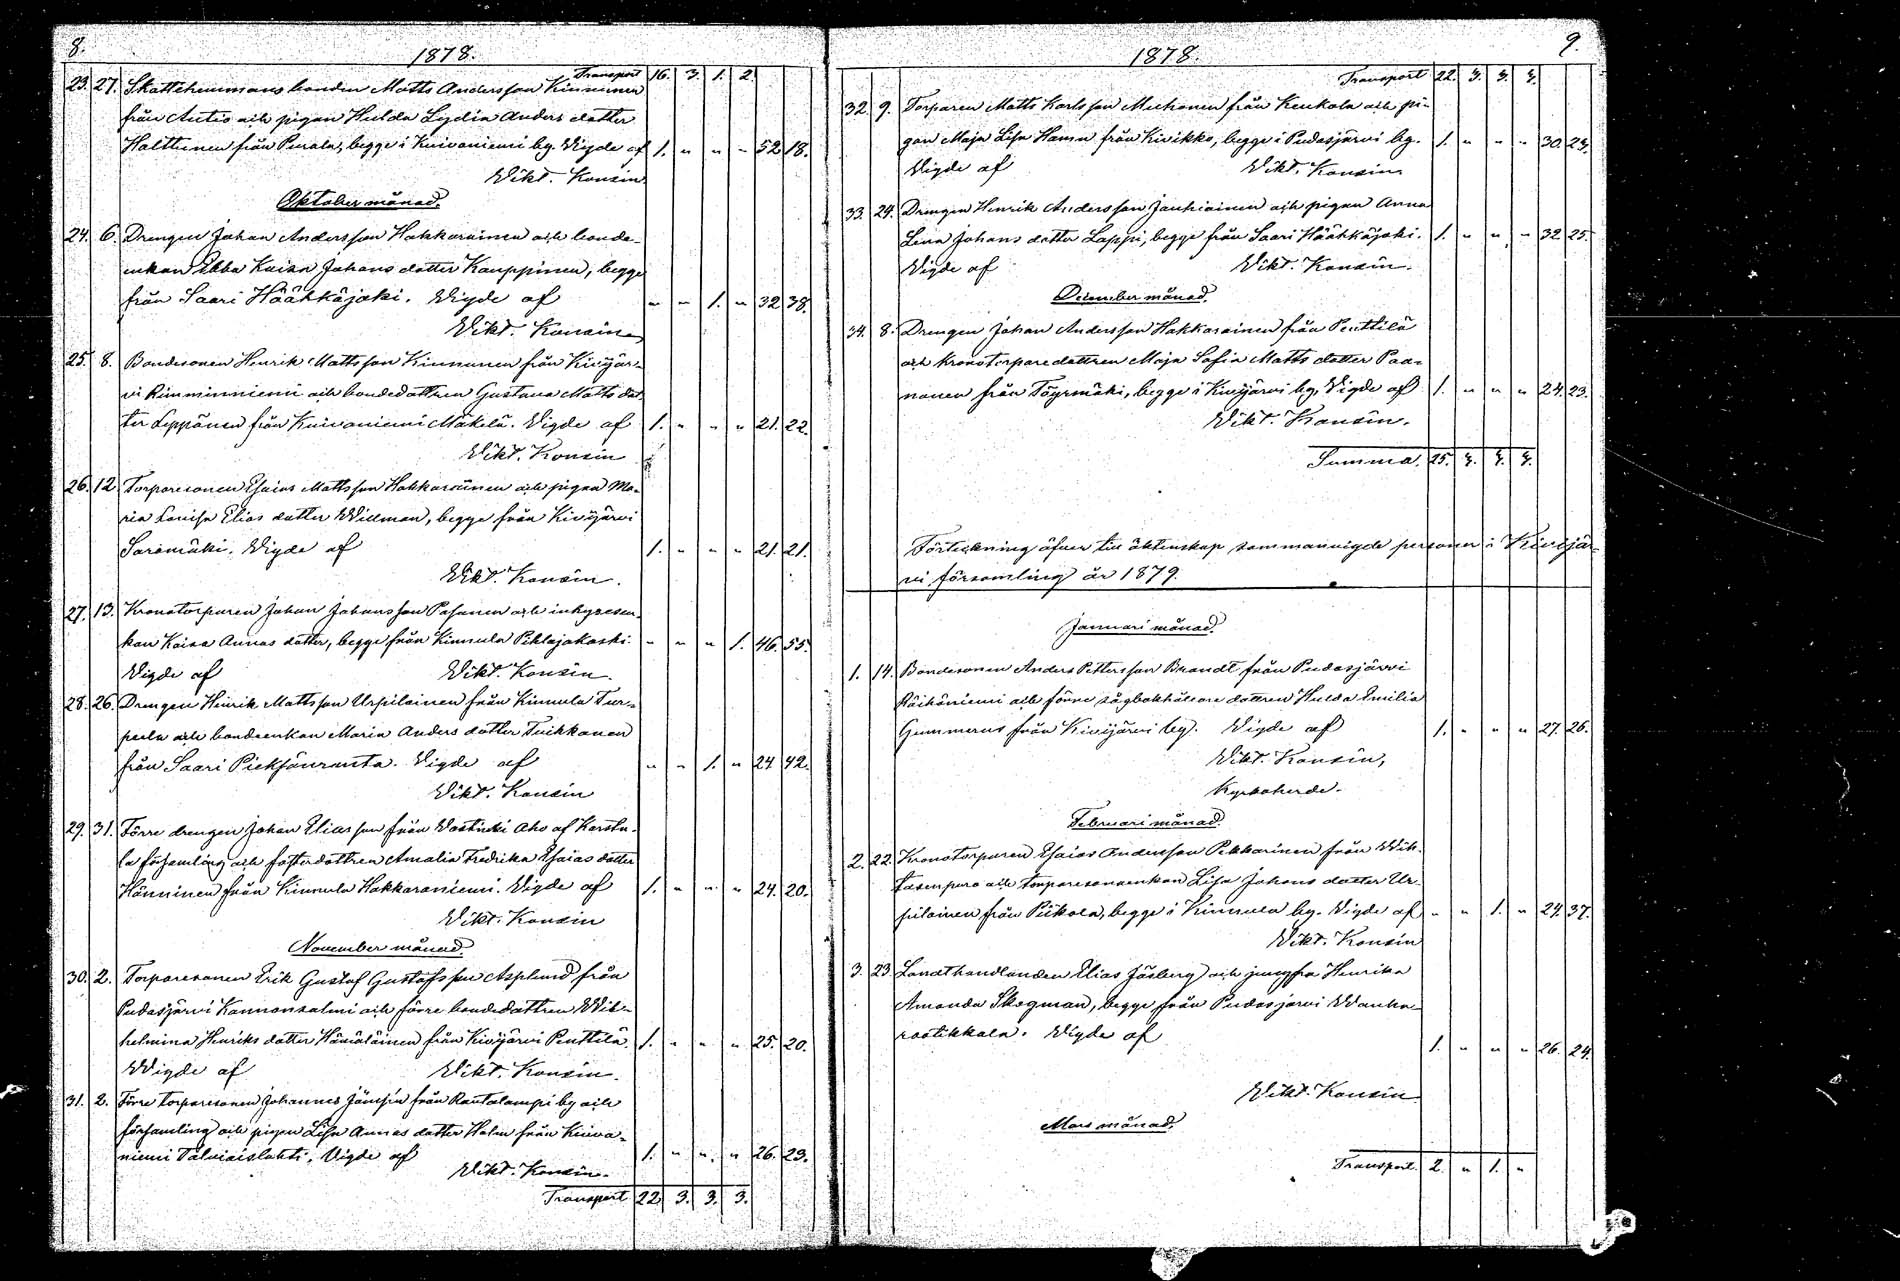 8.
1878.
Transport 16. 3. 1. 2.
23. 27. Skattehemmans bonden Matts Andersson Kinnunen
från Autio och pigan Hulda Lydia Anders dotter
Halttunen från Peurala, begge i Kuivaniemi by. Vigde af 1. " " " 52 18.
Vikt. Konsin.
Oktober månad.
24. 6. Drengen Johan Andersson Hakkarainen och bonde-
enkan Ebba Kaisa Johans dotter Kauppinen, begge
från Saari Häähkäjoki. Vigde af " " 1. " 32 38.
Vikt. Konsin
25. 8. Bondesonen Henrik Mattsson Kinnunen från Kivijär-
vi Rimminniemi och bondedottren Gustava Matts dot
ter Leppänen från Kuivaniemi Mäkelä. Vigde af 1. " " " 21. 22.
Vikt. Konsin
26. 12. Torparesonen Esaias Mattsson Hakkarainen och pigan Ma-
ria Lovisa Elias dotter Willman, begge från Kivijärvi
Saramäki. Vigde af 1. " " " 21. 21.
Vikt. Konsin.
27. 13. Kronotorparen Johan Johansson Pasanen och inhysesen-
kan Kaisa Annas dotter, begge från Kinnula Pihlajakoski " " " 1. 46. 55.
Vigde af Vikt. Konsin.
28. 26. Drengen Henrik Mattsson Urpilainen från Kinnula Tur-
pela och bondeenkan Maria Anders dotter Tuikkanen
från Saari . Vigde af " " 1. " 24 42.
Vikt. Konsin
29. 31. Förre drengen Johan Eliasson från Vastinki Aho af Karstu-
la församling och fosterdottren Amalia Fredrika Esaias dotter
Hänninen från Kinnula Hakkaraniemi. Vigde af 1. " " " 24. 20.
Vikt. Konsin
November månad.
30. 2. Torparesonen Erik Gustaf Gustafsson Asplund från
Pudasjärvi Kannonsalmi och förre bondedottren Wil-
helmina Henriks dotter Hämäläinen från Kivijärvi Penttilä. 1. " " " 25. 20.
Wigde af Vikt. Konsin.
31. 2. Förre torparesonen Johannes Jämsén från Rautalampi by och
församling och pigan Lisa Annas dotter Holm från Kuiva-
niemi Talviaislahti. Vigde af 1. " " " 26. 23.
Vikt. Konsin.
Transport 22 3. 3. 3.
9.
1878.
Transport 22. 3. 3. 3.
32. 9. Torparen Matts Karlsson Muhonen från Keukola och pi-
gan Maja Lisa Hamn från Kivikko, begge i Pudasjärvi by. 1. " " " 30. 23.
Vigde af Vikt. Konsin
33. 24. Drengen Henrik Andersson Jauhiainen och pigan Anna
Lena Johans dotter Lappi, begge från Saari Häähkäjoki. 1. " " " 32 25.
Vigde af Vikt. Konsin.
December månad.
34. 8. Drengen Johan Andersson Hakkarainen från Penttilä
och kronotorparedottren Maja Sofia Matts dotter Paa-
nanen från Töyrmäki, begge i Kivijärvi by. Vigde af 1. " " " 24. 23.
Vikt. Konsin.
Summa. 25. 3. 3. 3.
Förteckning öfver till äktenskap sammanvigde personer i Kivijär-
vi församling år 1879.
Januari månad.
1. 14. Bondesonen Anders Pettersson Brandt från Pudasjärvi
Räihäniemi och förre sågbokhållare dottren Hulda Emilia
Gummerus från Kivijärvi by. Vigde af 1. " " " 27. 26.
Vikt. Konsin,
Kyrkoherde.
Februari månad.
2. 22. Kronotorparen Esaias Andersson Pekkarinen från Wih-
tasenpuro och torparesonenkan Lisa Johans dotter Ur-
pilainen från Piikola, begge i Kinnula by. Vigde af " " 1. " 24. 37.
Vikt. Konsin
3. 23. Landthandlanden Elias Jäsberg och jungfru Henrika
Amanda Skogman, begge från Pudasjärvi Wanha-
raatikkala. Vigde af 1. " " " 26. 24.
Vikt. Konsin
Mars månad.
Transport. 2. " 1. "